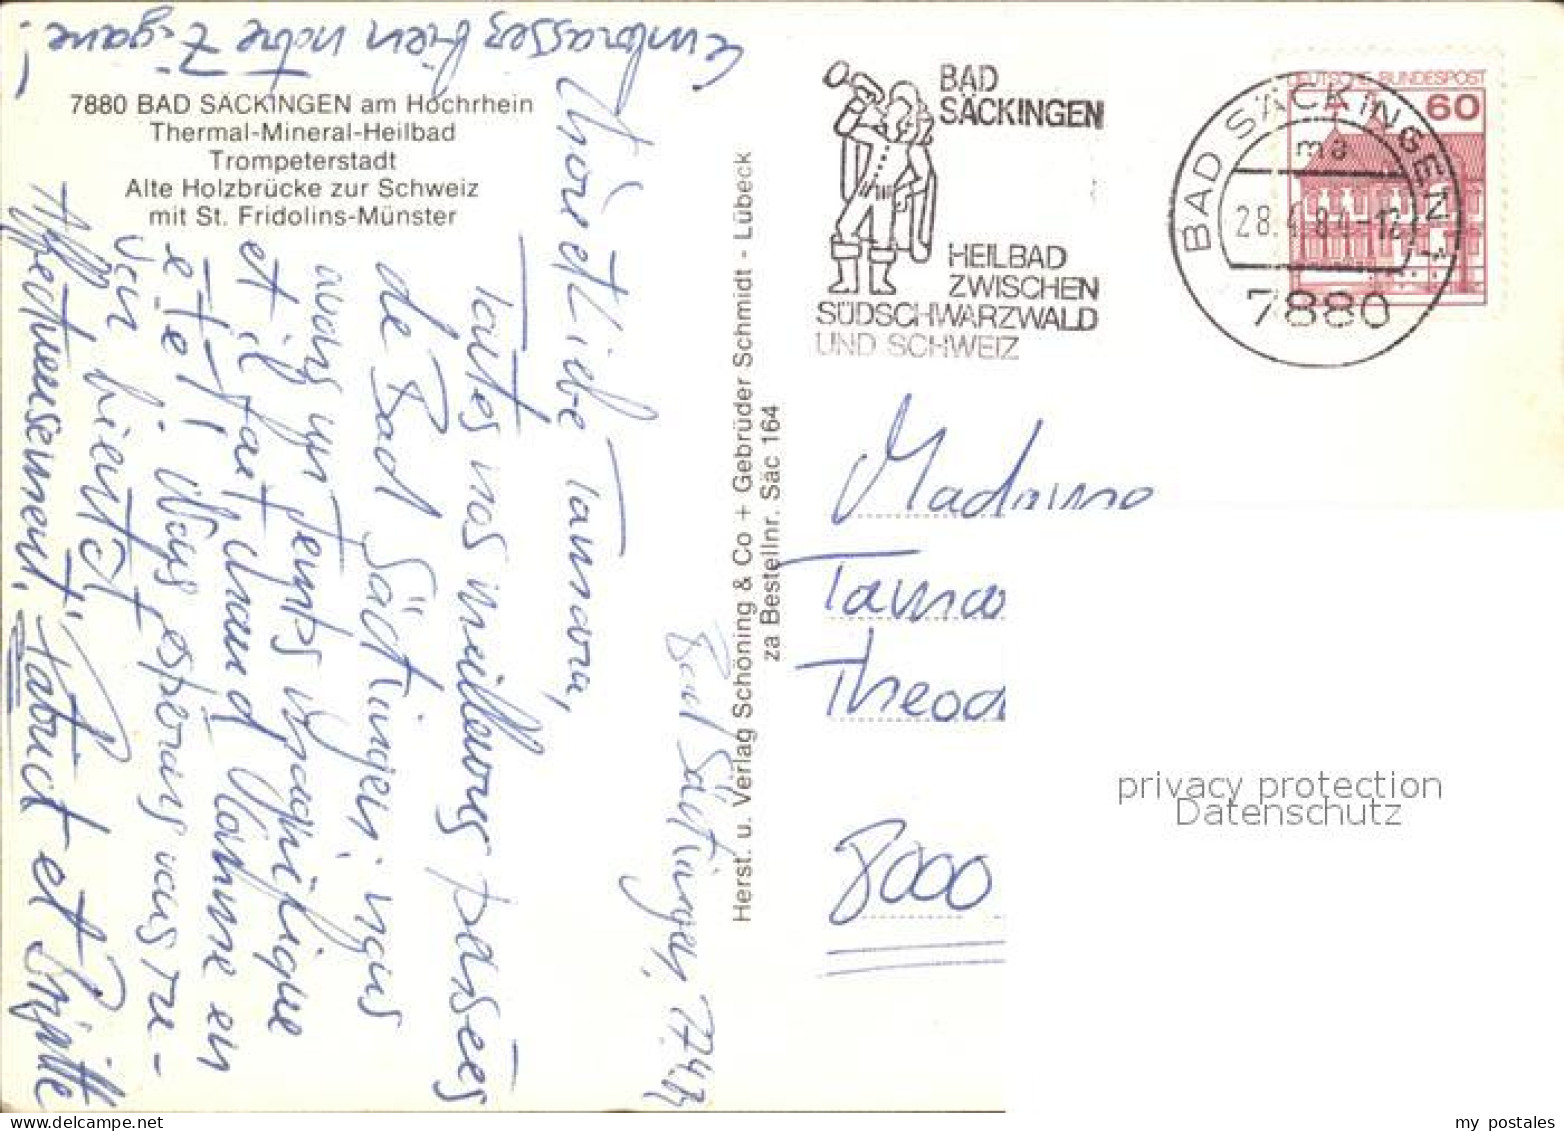 7880 BAD SÄCKINGEN am Hochrhein
Thermal-Mineral-Heilbad
Trompeterstadt
Alte Holzbrücke zur Schweiz
mit St. Fridolins-Münster
Bad Säckingen,
Liebe Tamara,
Toutes nos meilleures pensées
de Bad Säckingen; nous
avons un temps magnifique
et il fait chaud comme en
été! Nous espérons vous re-
voir bientôt
Affectueusement, et Brigitte
Embrassez bien notre Zigane!
Herst. u. Verlag Schöning & Co + Gebrüder Schmidt - Lübeck
za Bestellnr. Säc 164
BAD
SÄCKINGEN
HEILBAD
ZWISCHEN
SÜDSCHWARZWALD
UND SCHWEIZ
DEUTSCHE BUNDESPOST
60
BAD SÄCKINGEN 1
ma
28.4.84-12
7880
Madame
Tamar
Theod
8000
privacy protection
Datenschutz
my postales